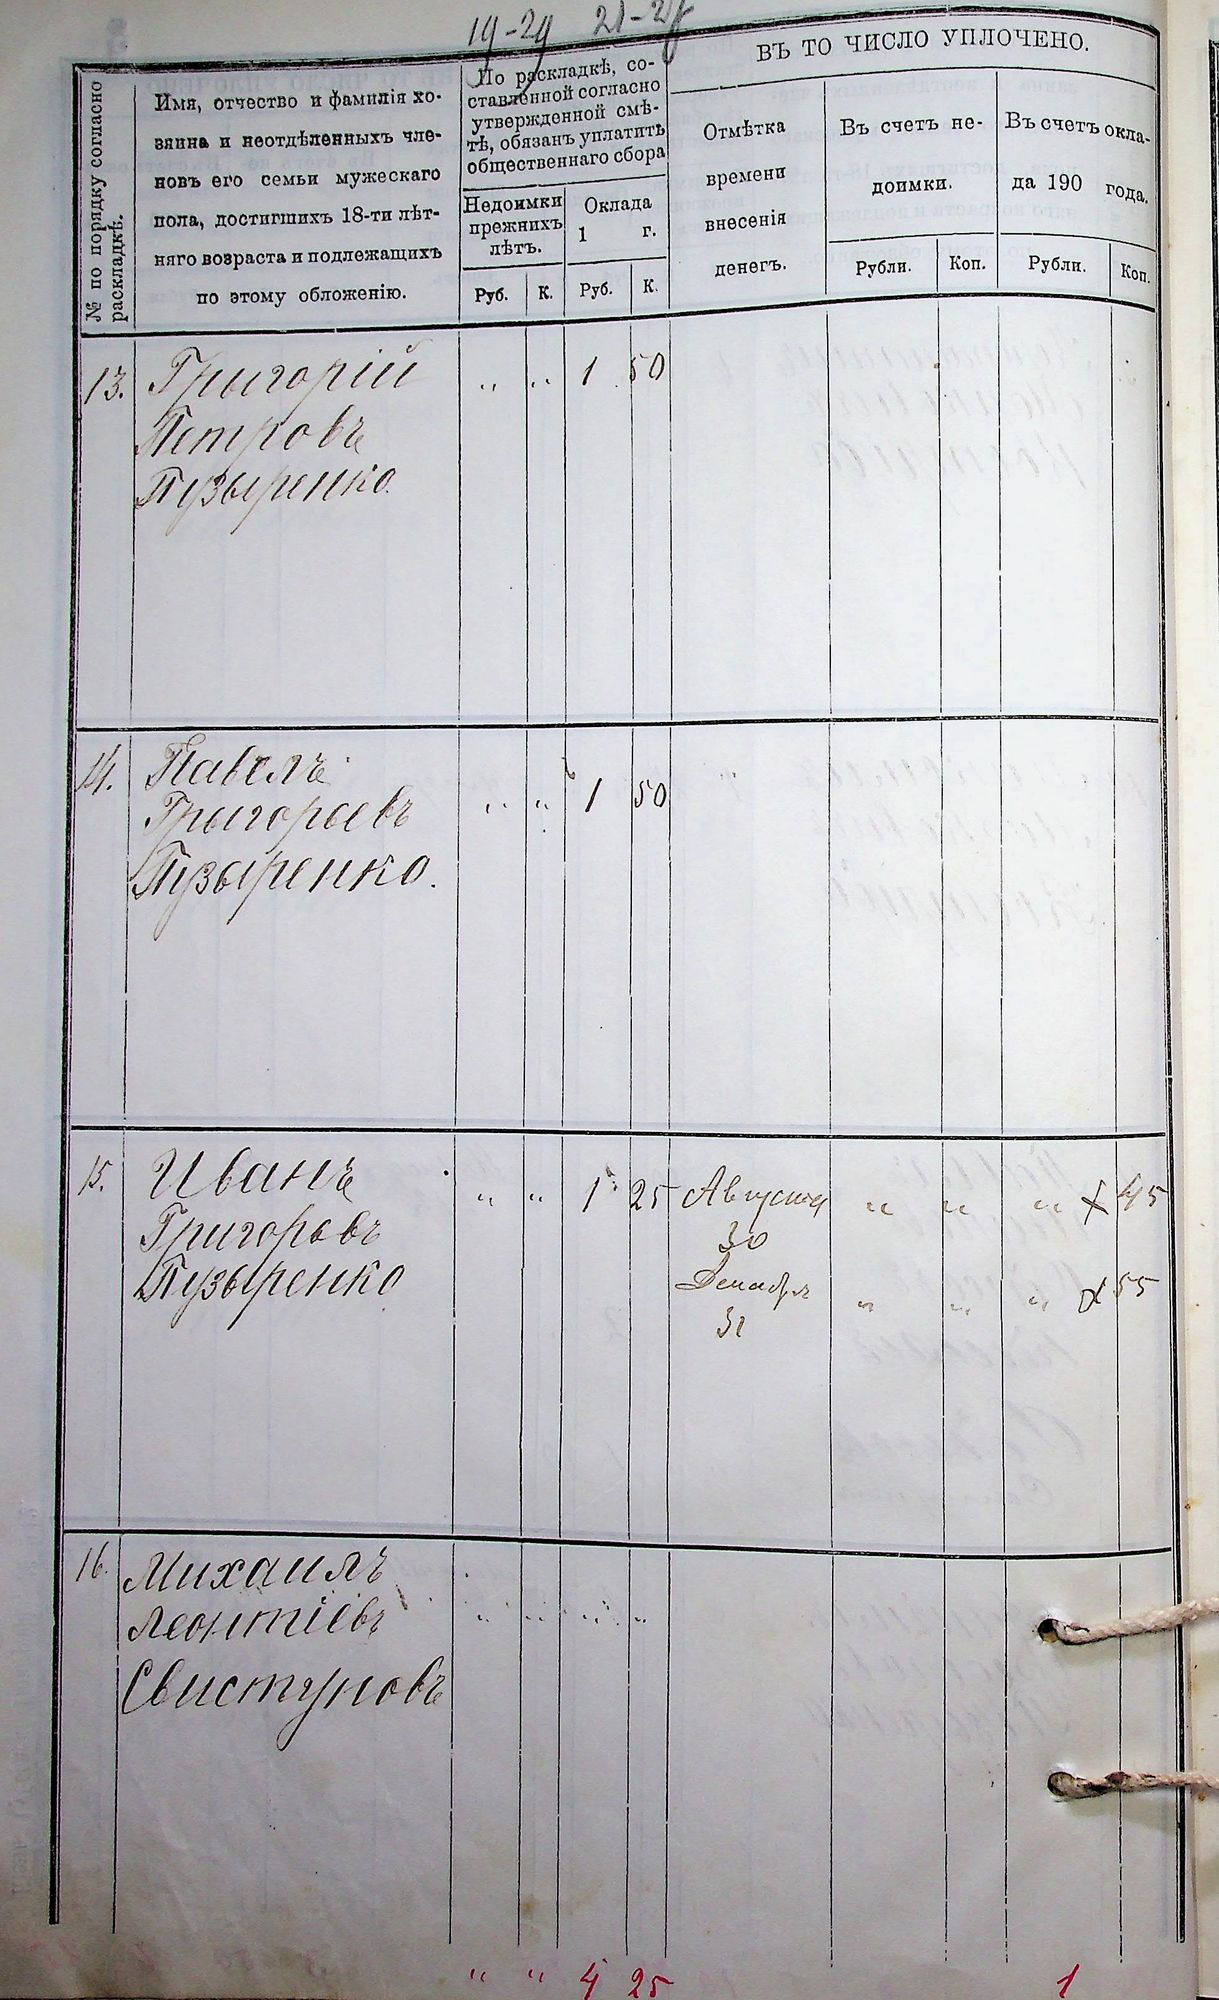 19-29 21-28
№ по порядку согласно
раскладкѣ.
Имя, отчество и фамилія хо-
зяина и неотдѣленныхъ чле-
новъ его семьи мужескаго
пола, достигшихъ 18-ти лѣт-
няго возраста и подлежащихъ
по этому обложенію.
По раскладкѣ, со-
ставленной согласно
утвержденной смѣ-
тѣ, обязанъ уплатить
общественнаго сбора
Недоимки
прежнихъ
лѣтъ.
Оклада
1 г.
Руб. К. Руб. К.
ВЪ ТО ЧИСЛО УПЛОЧЕНО.
Отмѣтка
времени
внесенія
денегъ.
Въ счетъ не-
доимки.
Въ счетъ окла-
да 190 года.
Рубли. Коп. Рубли. Коп.
13. Грыгорій " " 1 50
Петровъ
Пузыренко.
14. Павелъ " " 1 50
Грыгорьевъ
Пузыренко.
15. Иванъ " " 1 25 Августа " " " 45
Григорьевъ 30
Пузыренко Декабря " " " 55
31
16. Михаилъ
Леонтіевъ " " " "
Свистуновъ
" " 4 25 1